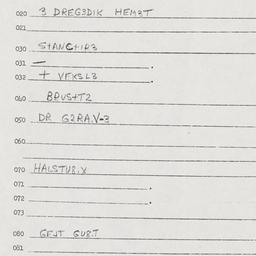 020 3 DREG3DIK HEM3T
021
030 STANC+IR3
031 —
032 + VFKSL3
040 BRUST2
050 DR G2RA.V=3
060
070 HALSTU8.X
071
072
073
080 GE4T GU8.T
081